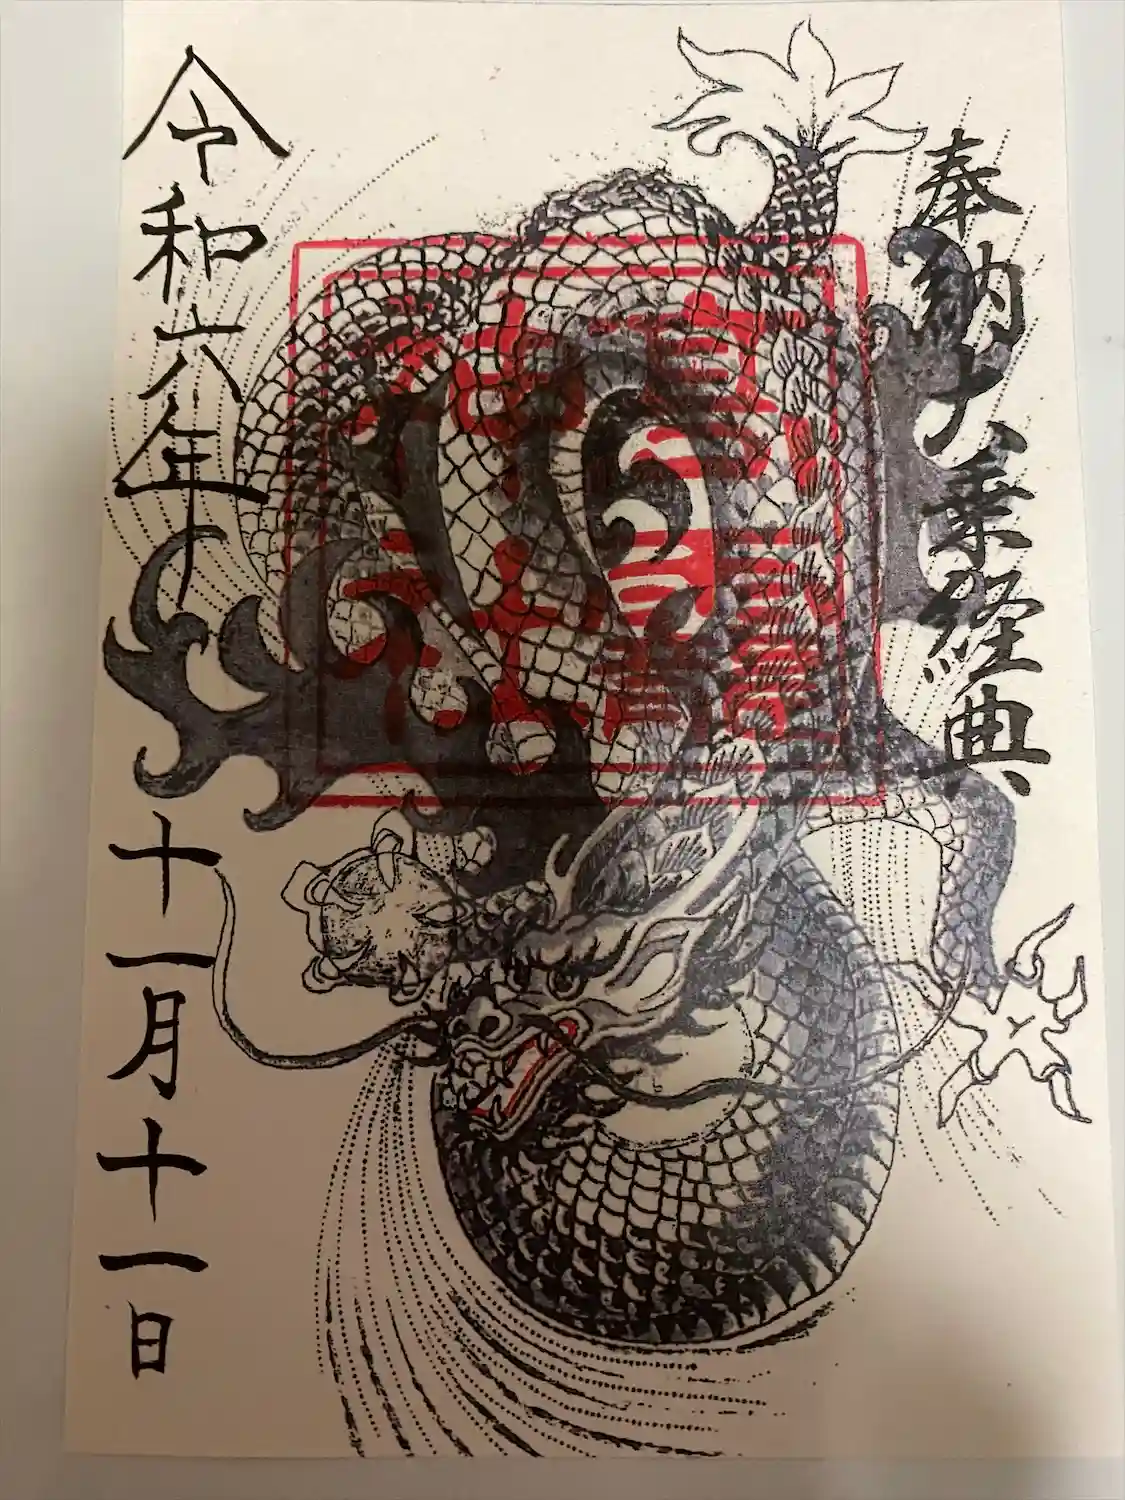 奉納大乗経典
令和六年
十一月十一日